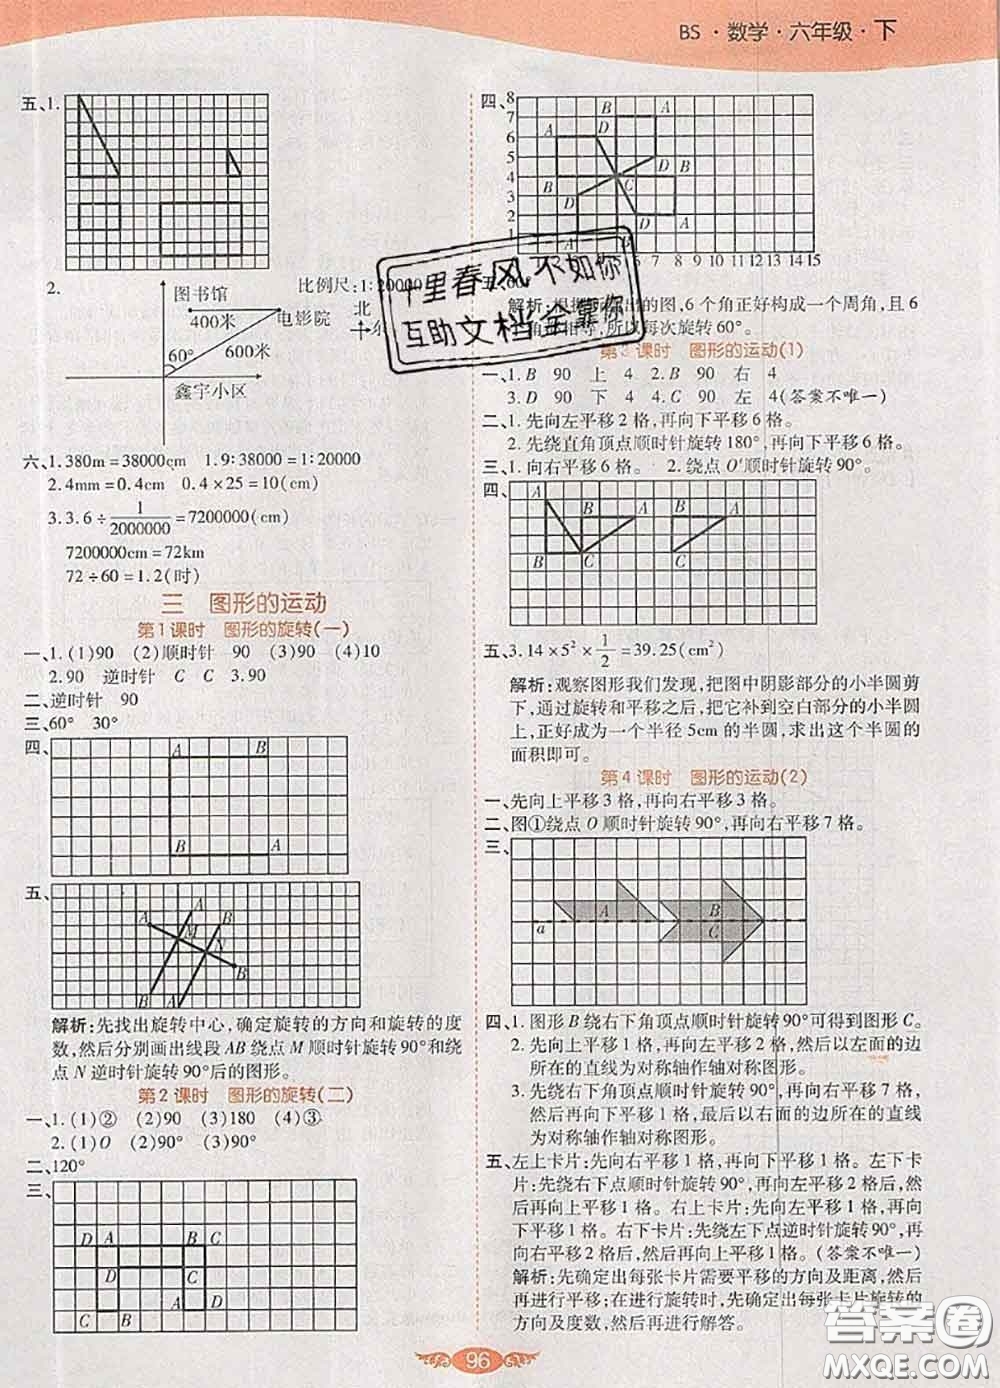 BS · 数学 · 六年级 · 下
五、1.
2.
图书馆
比例尺:1:20000
北
400米
电影院
东
60°
600米
鑫宇小区
六、1.380m=38000cm 1.9:38000=1:20000
2.4mm=0.4cm 0.4×25=10(cm)
3.3.6÷1/2000000=7200000(cm)
7200000cm=72km
72÷60=1.2(时)
三 图形的运动
第1课时 图形的旋转(一)
一、1.(1)90 (2)顺时针 90 (3)90 (4)10
2.90 逆时针 C C 3.90
二、逆时针 90
三、60° 30°
四、
A B
B A
五、
A A B
M N
B
B A
解析:先找出旋转中心,确定旋转的方向和旋转的度
数,然后分别画出线段AB绕点M顺时针旋转90°和绕
点N逆时针旋转90°后的图形。
第2课时 图形的旋转(二)
一、1.(1)② (2)90 (3)180 (4)③
2.(1)O (2)90° (3)90°
二、120°
三、
D A B C
D C
A D
C B
四、
8
7
6
5
4
3
2
1
B A
A D
D B
B C
D
D A
6 7 8 9 10 11 12 13 14 15
五、60°
解析:根据
出的图,6个角正好构成一个周角,且6
相等,所以每次旋转60°。
十里春风不如你
互助文档全靠你
第3课时 图形的运动(1)
一、1.B 90 上 4 2.B 90 右 4
3.D 90 下 4 4.C 90 左 4(答案不唯一)
二、1.先向左平移2格,再向下平移6格。
2.先绕直角顶点顺时针旋转180°,再向下平移6格。
三、1.向右平移6格。 2.绕点O′顺时针旋转90°。
四、
A
B A A
B C C
五、3.14×5²×1/2=39.25(cm²)
解析:观察图形我们发现,把图中阴影部分的小半圆剪
下,通过旋转和平移之后,把它补到空白部分的小半圆
上,正好成为一个半径5cm的半圆,求出这个半圆的
面积即可。
第4课时 图形的运动(2)
一、先向上平移3格,再向右平移7格。
二、图①绕点O顺时针旋转90°,再向右平移7格。
三、
A B
a C
四、1.图形B绕右下角顶点顺时针旋转90°可得到图形C。
2.先向上平移1格,再向左平移2格,然后以左面的边
所在的直线为对称轴作轴对称图形。
3.先绕右下角顶点顺时针旋转90°,再向右平移7格,
然后再向下平移1格,最后以右面的边所在的直线
为对称轴作轴对称图形。
五、左上卡片:先向右平移1格,再向下平移1格。左下卡
片:先绕右下点顺时针旋转90°,再向左平移2格,然
后再向上平移1格。右上卡片:先向右平移1格,再向
下平移1格。右下卡片:先绕左下点逆时针旋转90°,再
向右平移2格,然后再向上平移1格。(答案不唯一)
解析:先确定出每张卡片需要平移的方向及距离,然后
再进行平移;在进行旋转时,先确定出每张卡片旋转的
方向及度数,然后再进行解答。
96
答案圈
MXQE.COM